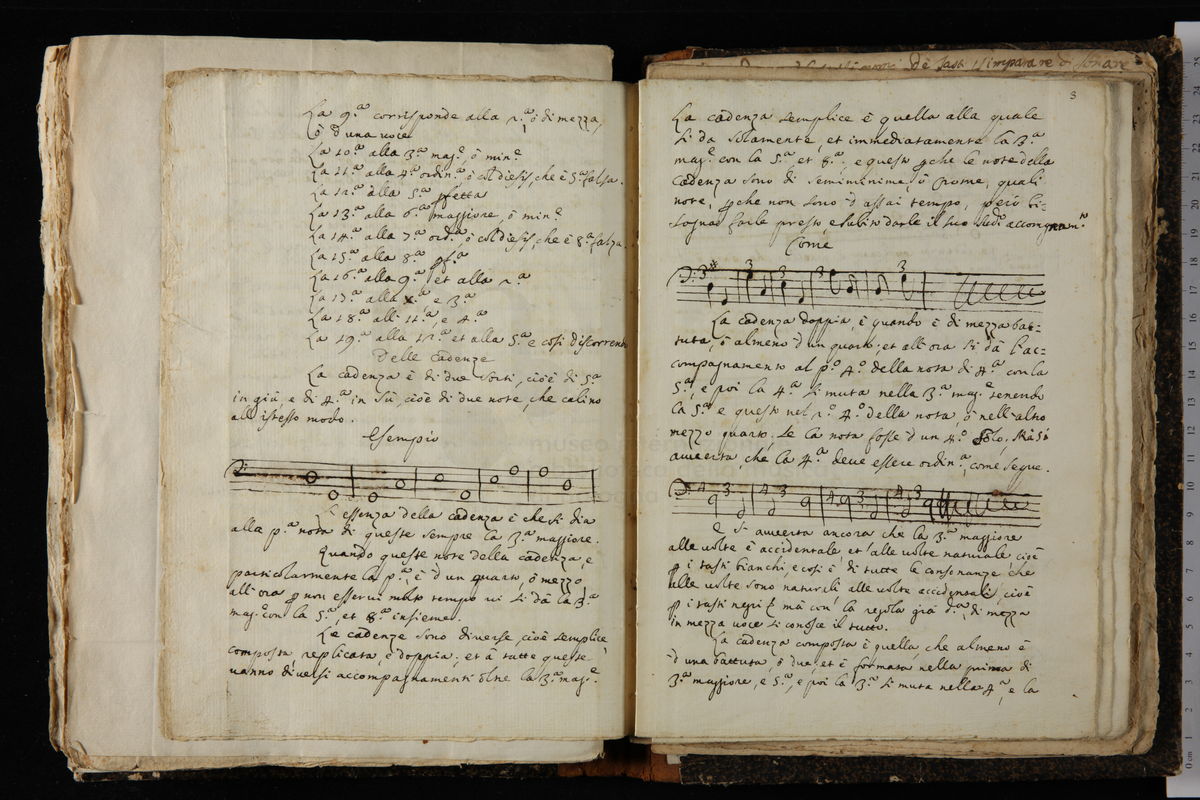 La 9.ª corrisponde alla 2.ª ò di mezza,
ò d'una voce
La 10.ª alla 3.ª mag.e ò min.e
La 11.ª alla 4.ª ordin.ª ò col diesis, che è 5.ª falsa.
La 12.ª alla 5.ª pfetta
La 13.ª alla 6.ª maggiore, ò min.e
La 14.ª alla 7.ª ord.ª ò col diesis che è 8.ª falza.
La 15.ª alla 8.ª pf.ª
La 16.ª alla 9.ª et alla 2.ª
La 17.ª alla X.ª e 3.ª
La 18.ª all' 11.ª e 4.ª
La 19.ª alla 12.ª et alla 5.ª e così discorrendo
Delle Cadenze
La cadenza è di due sorti, cioè di 5.ª
in giù, e di 4.ª in sù, cioè di due note, che calino
all'istesso modo.
Esempio
L'essenza della cadenza è che si dia
alla p.ª nota di queste sempre la 3.ª maggiore.
Quando queste note della cadenza, e
particolarmente la p.ª è d'un quarto, ò mezzo
all'ora p non esservi molto tempo vi si dà la 3.ª
mag.e con la 5.ª, et 8.ª insieme.
Le cadenze sono diverse, cioè semplice,
composta, replicata, e doppia; et à tutte queste
vanno diversi accompagnamenti oltre la 3.ª mag.e
Dè tasti imparare sonare
3
La cadenza semplice è quella alla quale
si da solamente, et immediatamente la 3.ª
mag.e con la 5.ª et 8.ª, e questo pche le note della
cadenza sono di semiminime, ò crome, quali
note, pche non sono d'assai tempo, però bi=
sogna farle presto, e subito darle il suo sud.o accompagnam.to
Come
3 # 3 3 3 3
La cadenza doppia, è quando è di mezza bat=
tuta, ò almeno d'un quarto; et all'ora si dà l'ac=
compagnamento al p.o 4.o della nota di 4.ª con la
5.ª, e poi la 4.ª si muta nella 3.ª mag.e tenendo
la 5.ª e questo nel 2.o 4.o della nota, ò nell'altro
mezzo quarto, se la nota fosse d'un 4.o solo, mà si
averta, che la 4.ª deve essere ordin.ª, come segue.
4 3 4 3 4 3 4 3
E si averta ancora che la 3.ª maggiore
alle volte è accidentale, et alle volte naturale, cioè
p i tasti bianchi, e così è di tutte le consonanze che
alle volte sono naturali alle volte accidentali, cioè
p i tasti negri, mà con la regola già d.ª, di mezza
in mezza voce si conosce il tutto.
La cadenza composta è quella che almeno è
d'una battuta, ò due, et è formata nella prima di
3.ª maggiore, e 5.ª, e poi la 3.ª si muta nella 4.ª, e la